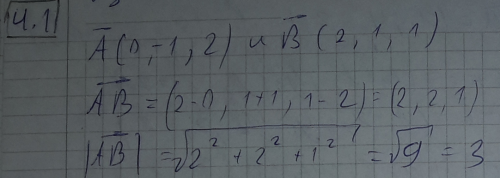 4.1
A̅(0,-1,2) и B̅(2,1,1)
A̅B̅ = (2-0, 1+1, 1-2) = (2,2,1)
|A̅B̅| = √(2² + 2² + 1²) = √9 = 3